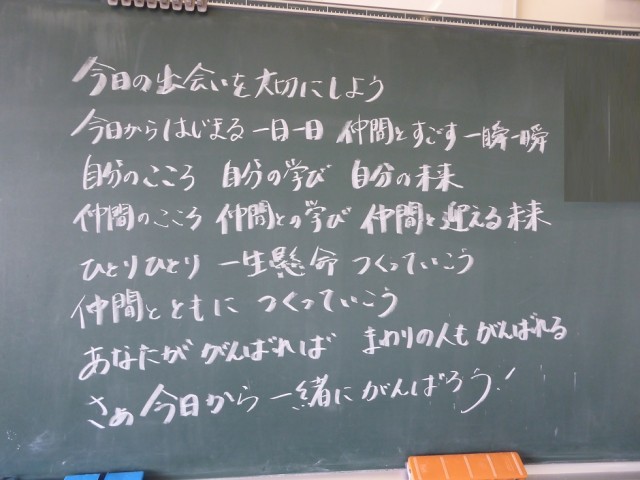 今日の出会いを大切にしよう
今日からはじまる 一日一日 仲間とすごす 一瞬一瞬
自分のこころ 自分の学び 自分の未来
仲間のこころ 仲間との学び 仲間と迎える未来
ひとりひとり 一生懸命 つくっていこう
仲間とともに つくっていこう
あなたが がんばれば まわりの人も がんばれる
さぁ 今日から 一緒に がんばろう!